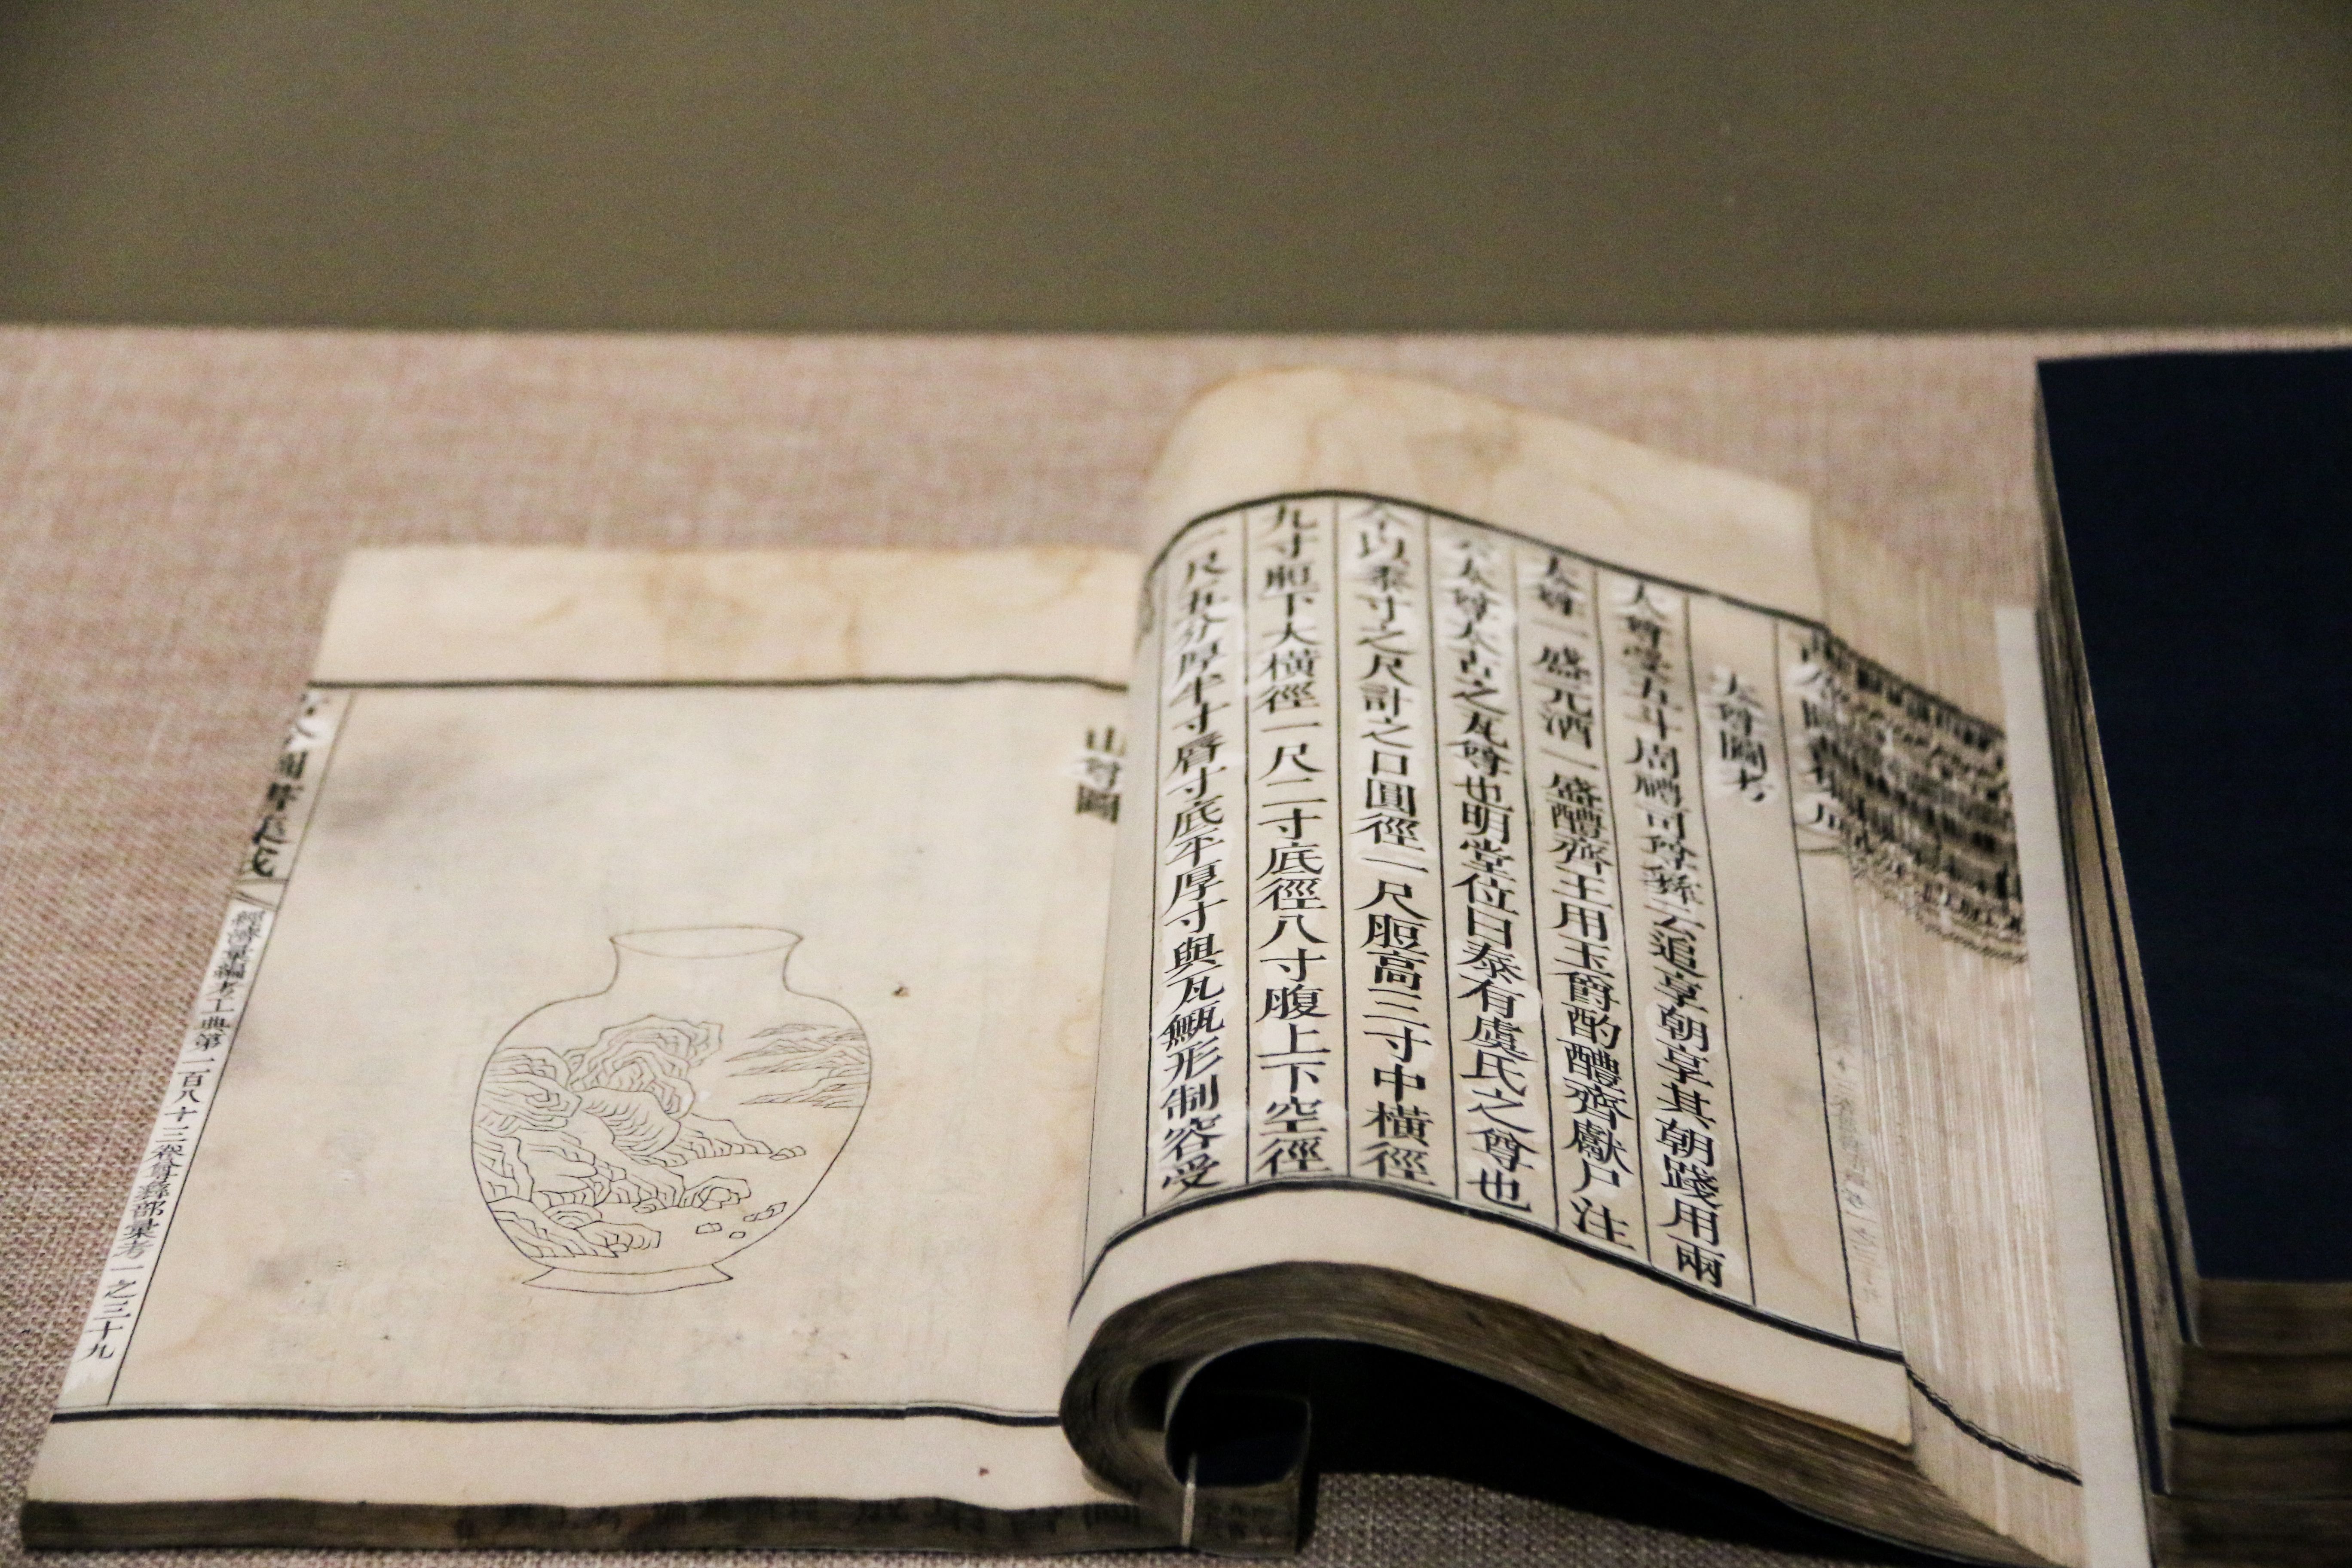 太尊圖考
太尊受五斗周禮司尊彝云追享朝享其朝踐用兩
太尊一盛元酒一盛醴齊王用玉爵酌醴齊獻尸注
云太尊太古之瓦尊也明堂位曰泰有虞氏之尊也
今以黍寸之尺計之口圓徑一尺脰高三寸中橫徑
九寸脰下大橫徑一尺二寸底徑八寸腹上下空徑
一尺五分厚半寸脣寸底平厚寸與瓦甒形制容受
山尊圖
圖書集成
經濟彙編考工典第一百八十三卷尊彝部彙考一之三十九